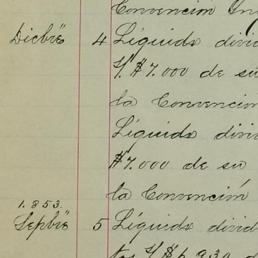 Convencion In
Dicbre 4 Líquido divid
S/. $7.000 de su
la Convencion
Líquido divid
$7.000 de su
la Convención
1.853.
Sepbre 5 Líquido divid
tos S/ $6.930 d